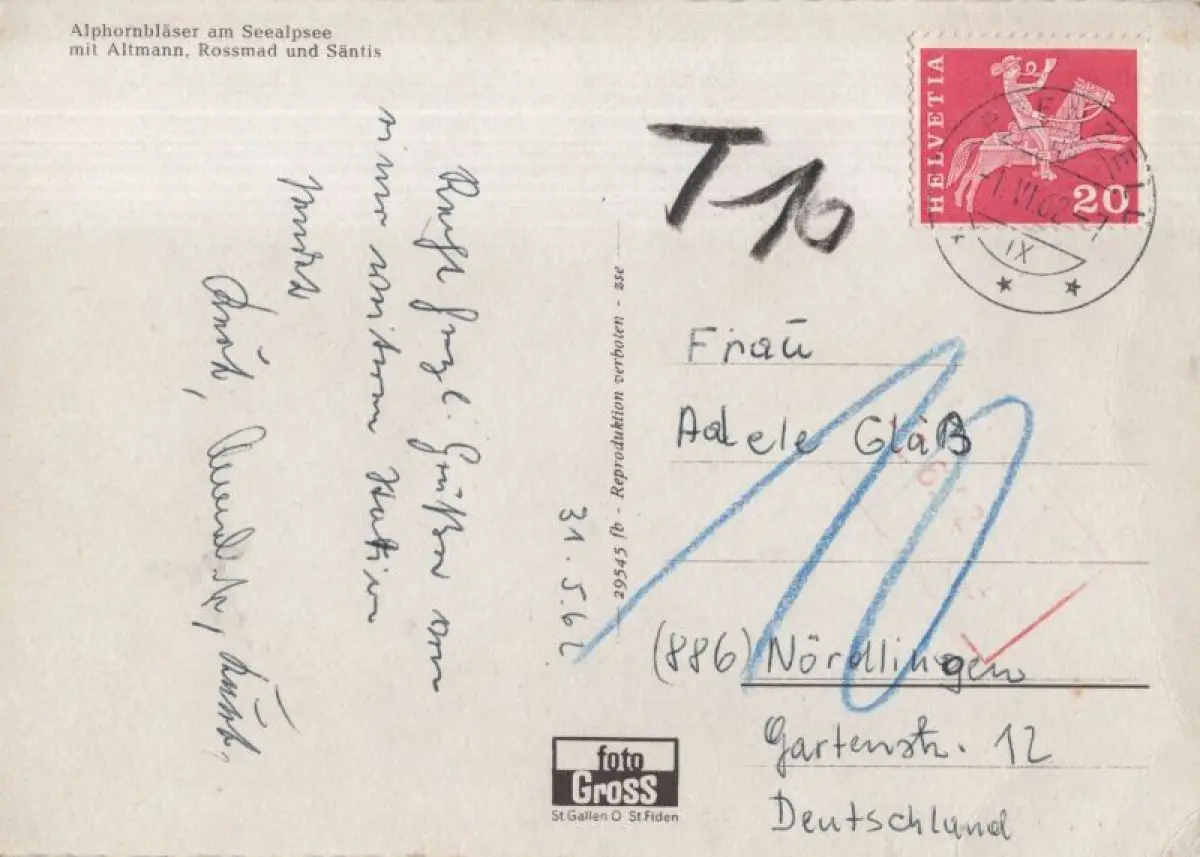 Alphornbläser am Seealpsee
mit Altmann, Rossmad und Säntis
HELVETIA
20
APPENZELL
-1.VI.62
IX
T 10
31.5.62
Recht herzl. Grüße von
einer weiteren Station
sendet
29545 fb - Reproduktion verboten - zse
Frau
Adele Gläß
10
(886) Nördlingen
Gartenstr. 12
Deutschland
foto
Gross
St.Gallen O St.Fiden